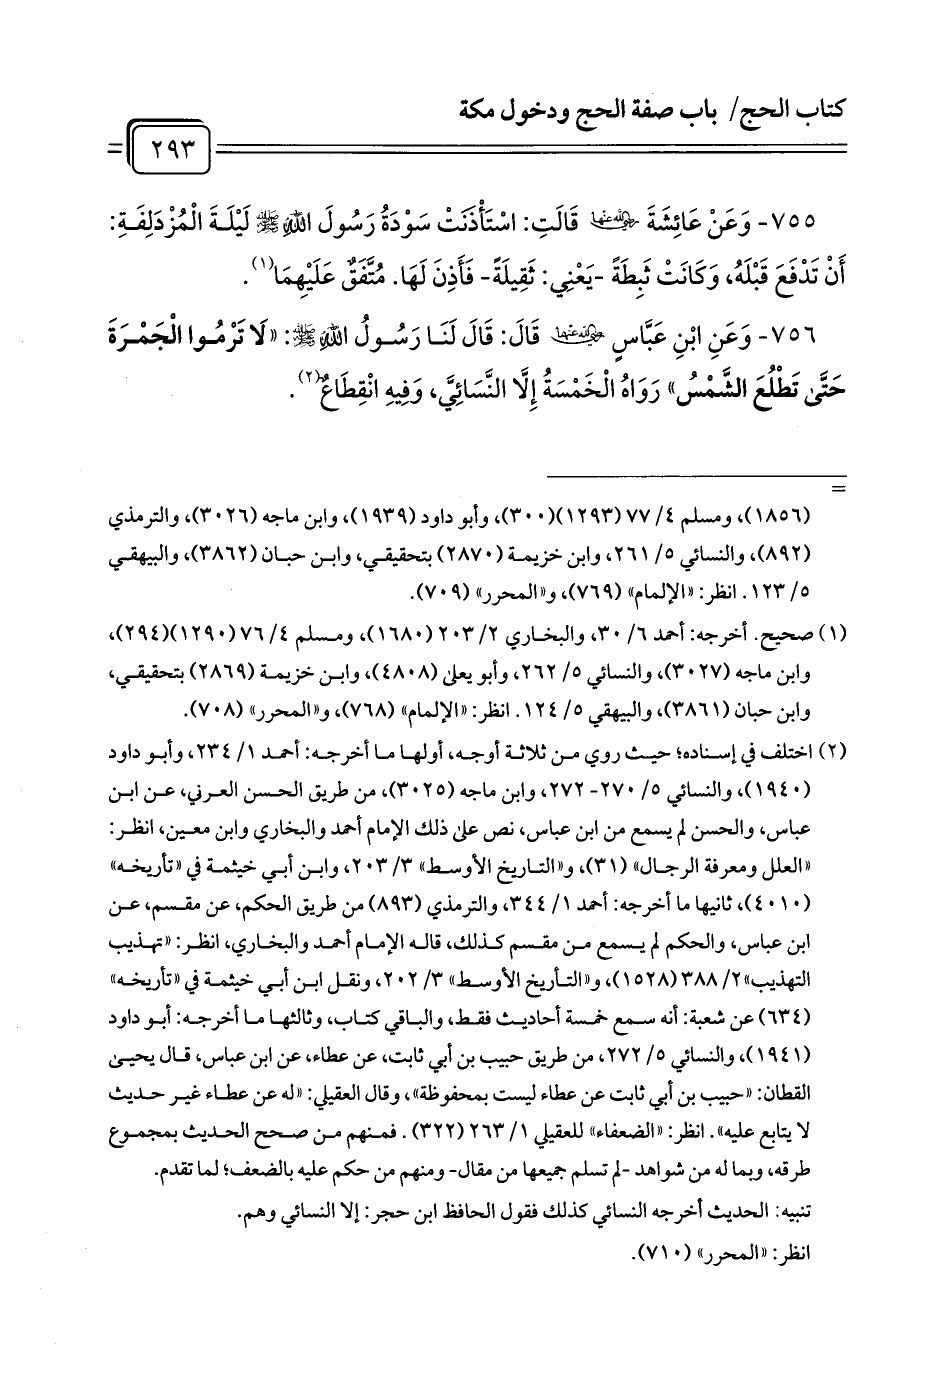 كتاب الحج/ باب صفة الحج ودخول مكة
٢٩٣
٧٥٥- وَعَنْ عَائِشَةَ رضي الله عنها قَالَتِ: اسْتَأْذَنَتْ سَوْدَةُ رَسُولَ اللهِ ﷺ لَيْلَةَ الْمُزْدَلِفَةِ:
أَنْ تَدْفَعَ قَبْلَهُ، وَكَانَتْ ثَبِطَةً -يَعْنِي: ثَقِيلَةً- فَأَذِنَ لَهَا. مُتَّفَقٌ عَلَيْهِمَا(١).
٧٥٦- وَعَنِ ابْنِ عَبَّاسٍ رضي الله عنهما قَالَ: قَالَ لَنَا رَسُولُ اللهِ ﷺ: «لَا تَرْمُوا الْجَمْرَةَ
حَتَّىٰ تَطْلُعَ الشَّمْسُ» رَوَاهُ الْخَمْسَةُ إِلَّا النَّسَائِيَّ، وَفِيهِ انْقِطَاعٌ(٢).
=
(١٨٥٦)، ومسلم ٤/ ٧٧ (١٢٩٣)(٣٠٠)، وأبو داود (١٩٣٩)، وابن ماجه (٣٠٢٦)، والترمذي
(٨٩٢)، والنسائي ٥/ ٢٦١، وابن خزيمة (٢٨٧٠) بتحقيقي، وابن حبان (٣٨٦٢)، والبيهقي
٥/ ١٢٣. انظر: «الإلمام» (٧٦٩)، و«المحرر» (٧٠٩).
(١) صحيح. أخرجه: أحمد ٦/ ٣٠، والبخاري ٢/ ٢٠٣ (١٦٨٠)، ومسلم ٤/ ٧٦ (١٢٩٠)(٢٩٤)،
وابن ماجه (٣٠٢٧)، والنسائي ٥/ ٢٦٢، وأبو يعلى (٤٨٠٨)، وابن خزيمة (٢٨٦٩) بتحقيقي،
وابن حبان (٣٨٦١)، والبيهقي ٥/ ١٢٤. انظر: «الإلمام» (٧٦٨)، و«المحرر» (٧٠٨).
(٢) اختلف في إسناده؛ حيث روي من ثلاثة أوجه، أولها ما أخرجه: أحمد ١/ ٢٣٤، وأبو داود
(١٩٤٠)، والنسائي ٥/ ٢٧٠-٢٧٢، وابن ماجه (٣٠٢٥)، من طريق الحسن العرني، عن ابن
عباس، والحسن لم يسمع من ابن عباس، نص على ذلك الإمام أحمد والبخاري وابن معين، انظر:
«العلل ومعرفة الرجال» (٣١)، و«التاريخ الأوسط» ٣/ ٢٠٣، وابن أبي خيثمة في «تأريخه»
(٤٠١٠)، ثانيها ما أخرجه: أحمد ١/ ٣٤٤، والترمذي (٨٩٣) من طريق الحكم، عن مقسم، عن
ابن عباس، والحكم لم يسمع من مقسم كذلك، قاله الإمام أحمد والبخاري، انظر: «تهذيب
التهذيب»٢/ ٣٨٨ (١٥٢٨)، و«التأريخ الأوسط» ٣/ ٢٠٢، ونقل ابن أبي خيثمة في «تأريخه»
(٦٣٤) عن شعبة: أنه سمع خمسة أحاديث فقط، والباقي كتاب، وثالثها ما أخرجه: أبو داود
(١٩٤١)، والنسائي ٥/ ٢٧٢، من طريق حبيب بن أبي ثابت، عن عطاء، عن ابن عباس، قال يحيىٰ
القطان: «حبيب بن أبي ثابت عن عطاء ليست بمحفوظة»، وقال العقيلي: «له عن عطاء غير حديث
لا يتابع عليه». انظر: «الضعفاء» للعقيلي ١/ ٢٦٣ (٣٢٢). فمنهم من صحح الحديث بمجموع
طرقه، وبما له من شواهد -لم تسلم جميعها من مقال- ومنهم من حكم عليه بالضعف؛ لما تقدم.
تنبيه: الحديث أخرجه النسائي كذلك فقول الحافظ ابن حجر: إلا النسائي وهم.
انظر: «المحرر» (٧١٠).